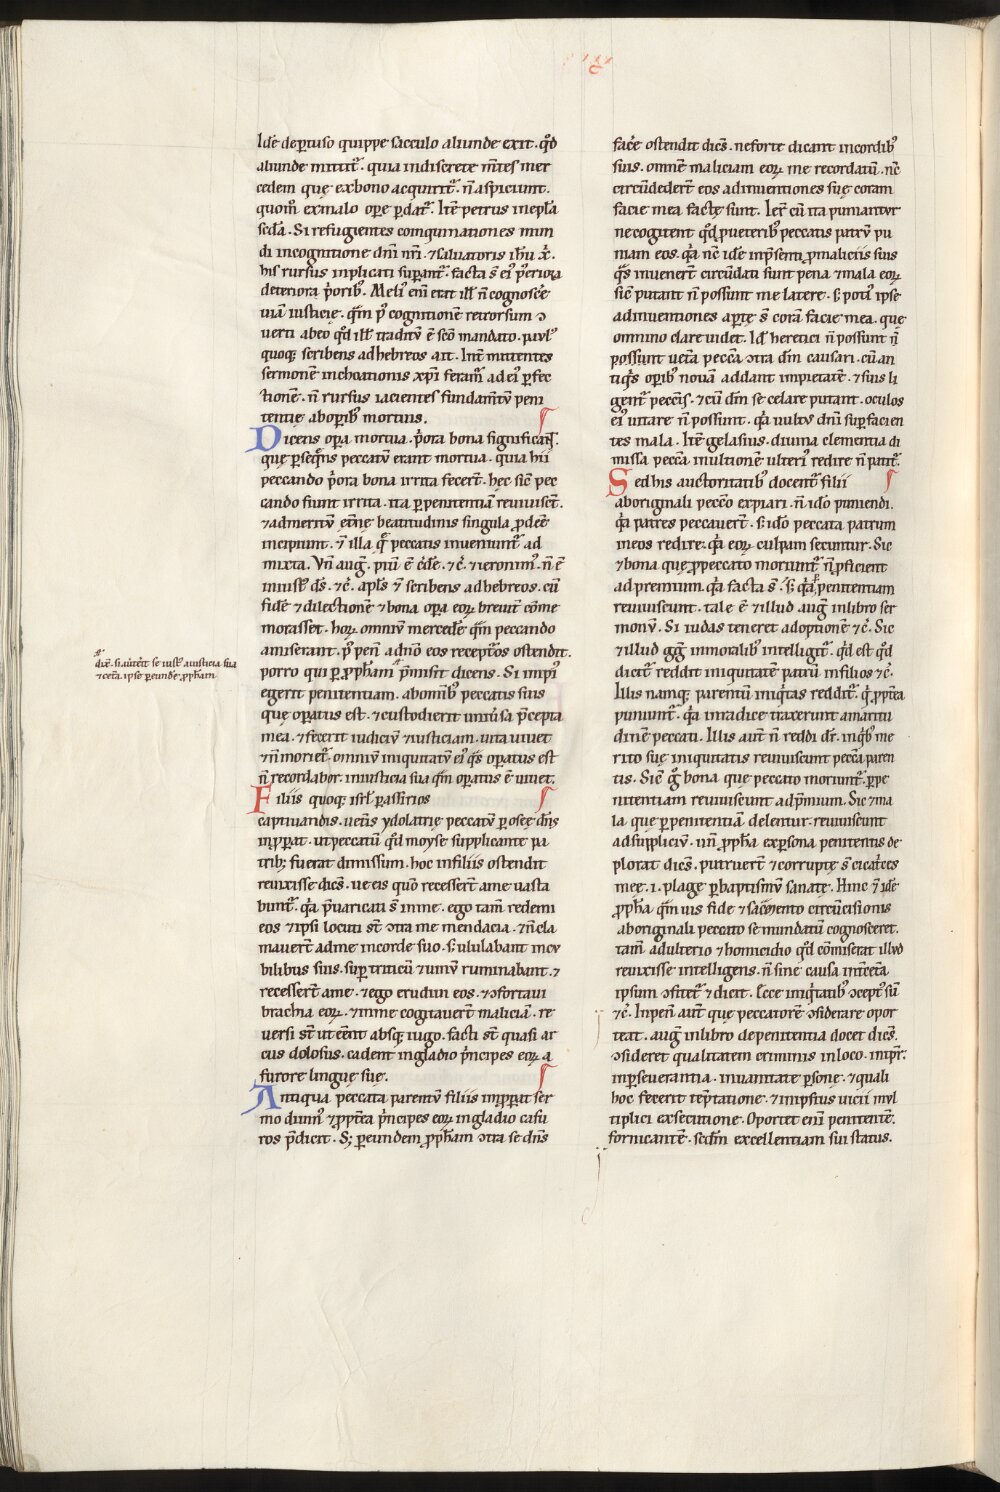 Idē de ꝑtuso quippe sacculo aliunde exit. qͦd
aliunde mittitͬ. quia indiscrete m̄tes mer
cedem quę ex bono acquiritͬ. n̄ aspiciunt.
quom̄ ex malo oꝑe ꝑdatͬ. Itē petrus in epl̄a
scd̄a. Si refugientes coinquinationes mun
di in cognitione dn̄i nr̄i. ⁊ saluatoris ih̄u x̄.
his rursus inplicati suꝑantͬ. facta s̄ eiꝰ p̄teriora
deteriora p̓oribꝰ. Meliꝰ eni erat ill̓ n̄ cognoscē
uiā iusticię. qͣm pꝰ cognitionē retrorsum ↄ
uerti ab eo qͦd ill̓ traditū ē sc̄o mandato. pavlꝰ
quoqꝫ scribens ad hebreos ait. Int̄mittentes
sermonē inchoationis xp̄i feramͬ ad eiꝰ ꝑfec
tionē. n̄ rursus iacientes fundam̄tū peni
tentię ab oꝑibꝰ mortuis.
Dicens oꝑa mortua. p̓ora bona significatͬ.
quę ꝑ seqn̄s peccatū erant mortua. quia hii
peccando p̓ora bona irrita fecer̄t. hęc sic̄ pec
cando fiunt irrita. ita ꝑ penitentiā reuiuisct̄.
⁊ ad meritū et̄nę beatitudinis singula ꝓdee̅
incipiunt. ⁊̄ illa quę peccatis inueniuntͬ ad
mixta. Vn̄ aug̅. piū ē c̓dē. ⁊c̄. ⁊ ieronimꝰ. n̄ ē
iniustꝰ ds̄. ⁊c̄. apl̄s ⁊̄ scribens ad hebreos. cū
fidē ⁊ dilectionē ⁊ bona oꝑa eoꝝ breuit̄ cōme
morasset. hoꝝ omniū mercedē qͣm peccando
amiserant. pꝰ pen̄ a dn̄o eos recepturos ostendit.
porro qui ꝑ ꝓpħam p̄misit dicens. Si impiꝰ
egerit penitentiam. ab omnibꝰ peccatis suis
quę oꝑatus est. ⁊ custodierit uniu̓sa p̄cepta
mea. ⁊ fecerit iudiciū ⁊ iusticiam. uita uiuet
⁊ n̄ morietͬ. omniū iniquitatū eiꝰ qͣs oꝑatus est
n̄ recordabor. in iusticia sua qͣm oꝑatus ē uiuet.
Filiis quoqꝫ isrl̄. ꝑ assirios
captiuandis. uetus ydolatrię peccatū ꝑ osee dn̄s
inꝓꝑat. ut peccatū qͦd moyse supplicante pa
tribꝫ fuerat dimissum. hoc in filiis ostendit
reuixisse dicēs. ve eis quō recesser̄t a me uasta
buntͬ. qͣ p̄uaricati s̄ in me. ego tam̄ redemi
eos ⁊ ipsi locuti st̄ ↄtra me mendacia. ⁊ n̄ cla
mauer̄t ad me in corde suo. s; ululabant in cu
bilibus suis. suꝑ triticū ⁊ uinū ruminabant. ⁊
recesser̄t a me. ⁊ ego erudiui eos. ⁊ ↄfortaui
brachia eoꝝ. ⁊ in me cogitauer̄t maliciā. re
uersi st̄ ut eēnt absqꝫ iugo. facti st̄ quasi ar
cus dolosus. cadent in gladio p̓ncipes eoꝝ a
furore linguę suę.
Antiqua peccata parentū filiis inꝓꝑat ser
mo diuinꝰ ⁊ ꝓpt̄ea p̓ncipes eoꝝ in gladio casu
ros p̄dicit. S; ꝑ eundem ꝓpħam ↄtra se dn̄s
dix̄. si aut̄ērit se iustꝰ a iusticia sua
⁊ cet̄a. ipse ꝑ eundē ꝓpħam
fac̄e ostendit dicēs. ne forte dicant in cordibꝰ
suis. omnē maliciam eoꝝ me recordatū. nc̄
circūdeder̄t eos adinuentiones suę coram
facie mea factę sunt. Ier̄ cū ita puniantur
ne cogitent qͦd p̱ ueteribꝰ peccatis patrū pu
niam eos. qͣ nc̄ idē in p̄senti ꝓ maliciis suis
qͣs inuener̄t circūdati sunt pena ⁊ mala eoꝝ
sic̄ putant n̄ possunt me latere. s; potiꝰ ipse
adinuentiones aꝑtę s̄ corā facie mea. que
omnino clare uidet. Id̓ heretici n̄ possunt n̄
possunt uet̄a pecc̄a ↄtra dm̄ causari. cū an
tiqͥs oꝑibꝰ nouā addant impietatē. ⁊ suis li
gentͬ pecc̄is. ⁊ cū dm̄ se celare putant. oculos
eiꝰ uitare n̄ possunt. qͣ uultꝰ dn̄i suꝑ facien
tes mala. Itē gelasius. diuina clementia di
missa pecc̄a in ultionē ulteriꝰ redire n̄ patitͬ.
Sed his auctoritatibꝰ docentͬ filii
ab originali pecc̄o expiari. n̄ idō puniendi.
qͣ patres peccauer̄t. s; idō peccata patrum
in eos redire. qͣ eoꝝ culpam secuntur. Sic
⁊ bona quę ꝓ peccato moriuntͬ n̄ ꝓficient
ad premium. qͣ facta s̄. s; qͣ ꝑ penitentiam
reuiuiscunt. tale ē ⁊ illud aug̅ in libro ser
monū. Si iudas teneret adoptionē ⁊c̄. Sic
⁊ illud gg̅ in moralibꝰ intelligitͬ. qͦd est qͦd
dicitͬ reddit iniquitatē patrū in filios ⁊c̄.
Illis namqꝫ parentū iniqͥtas redditͬ. qͥ ꝓpt̄ea
puniuntͬ. qͣ in radice traxerunt amaritu
dinē peccati. Illis aut̄ n̄ reddi dr̄. in qͥbꝰ me
rito suę iniquitatis reuiuiscunt pecc̄a paren
tis. Sic̄ g̊ bona quę peccato moriuntͬ. ꝑ pe
nitentiam reuiuiscunt ad p̄mium. Sic ⁊ ma
la quę ꝑ penitentiā delentur. reuiuiscunt
ad suppliciū. un̄ ꝓpħa ex persona penitentis de
plorat dicēs. putruer̄t ⁊ corruptę s̄ cicatces
męę. .i. plagę ꝑ baptismū sanatę. Hinc ⁊̄ idē
ꝓpħa qͣmuis fide ⁊ sac̄mento circūcisionis
ab originali peccato se mundatū cognosceret.
tam̄ adulterio ⁊ homicidio qͦd cōmiserat illud
reuixisse intelligens. n̄ sine causa int̄ cet̄a
ipsum ↄfitetͬ ⁊ dicit. Ecce iniqͥtatibꝰ ↄceptꝰ sū
⁊c̄. In pen̄ aut̄ quę peccatorē ↄsiderare opor
teat. aug̅ in libro de penitentia docet dicēs.
ↄsideret qualitatem criminis in loco. in tp̄r.
in ꝑseuerantia. in uarietate ꝑsonę. ⁊ quali
hoc fecerit tēptatione. ⁊ in ipsius uicii mul
tiplici exsecutione. Oportet enī penitentē.
fornicantē. scd̄m excellentiam sui status.